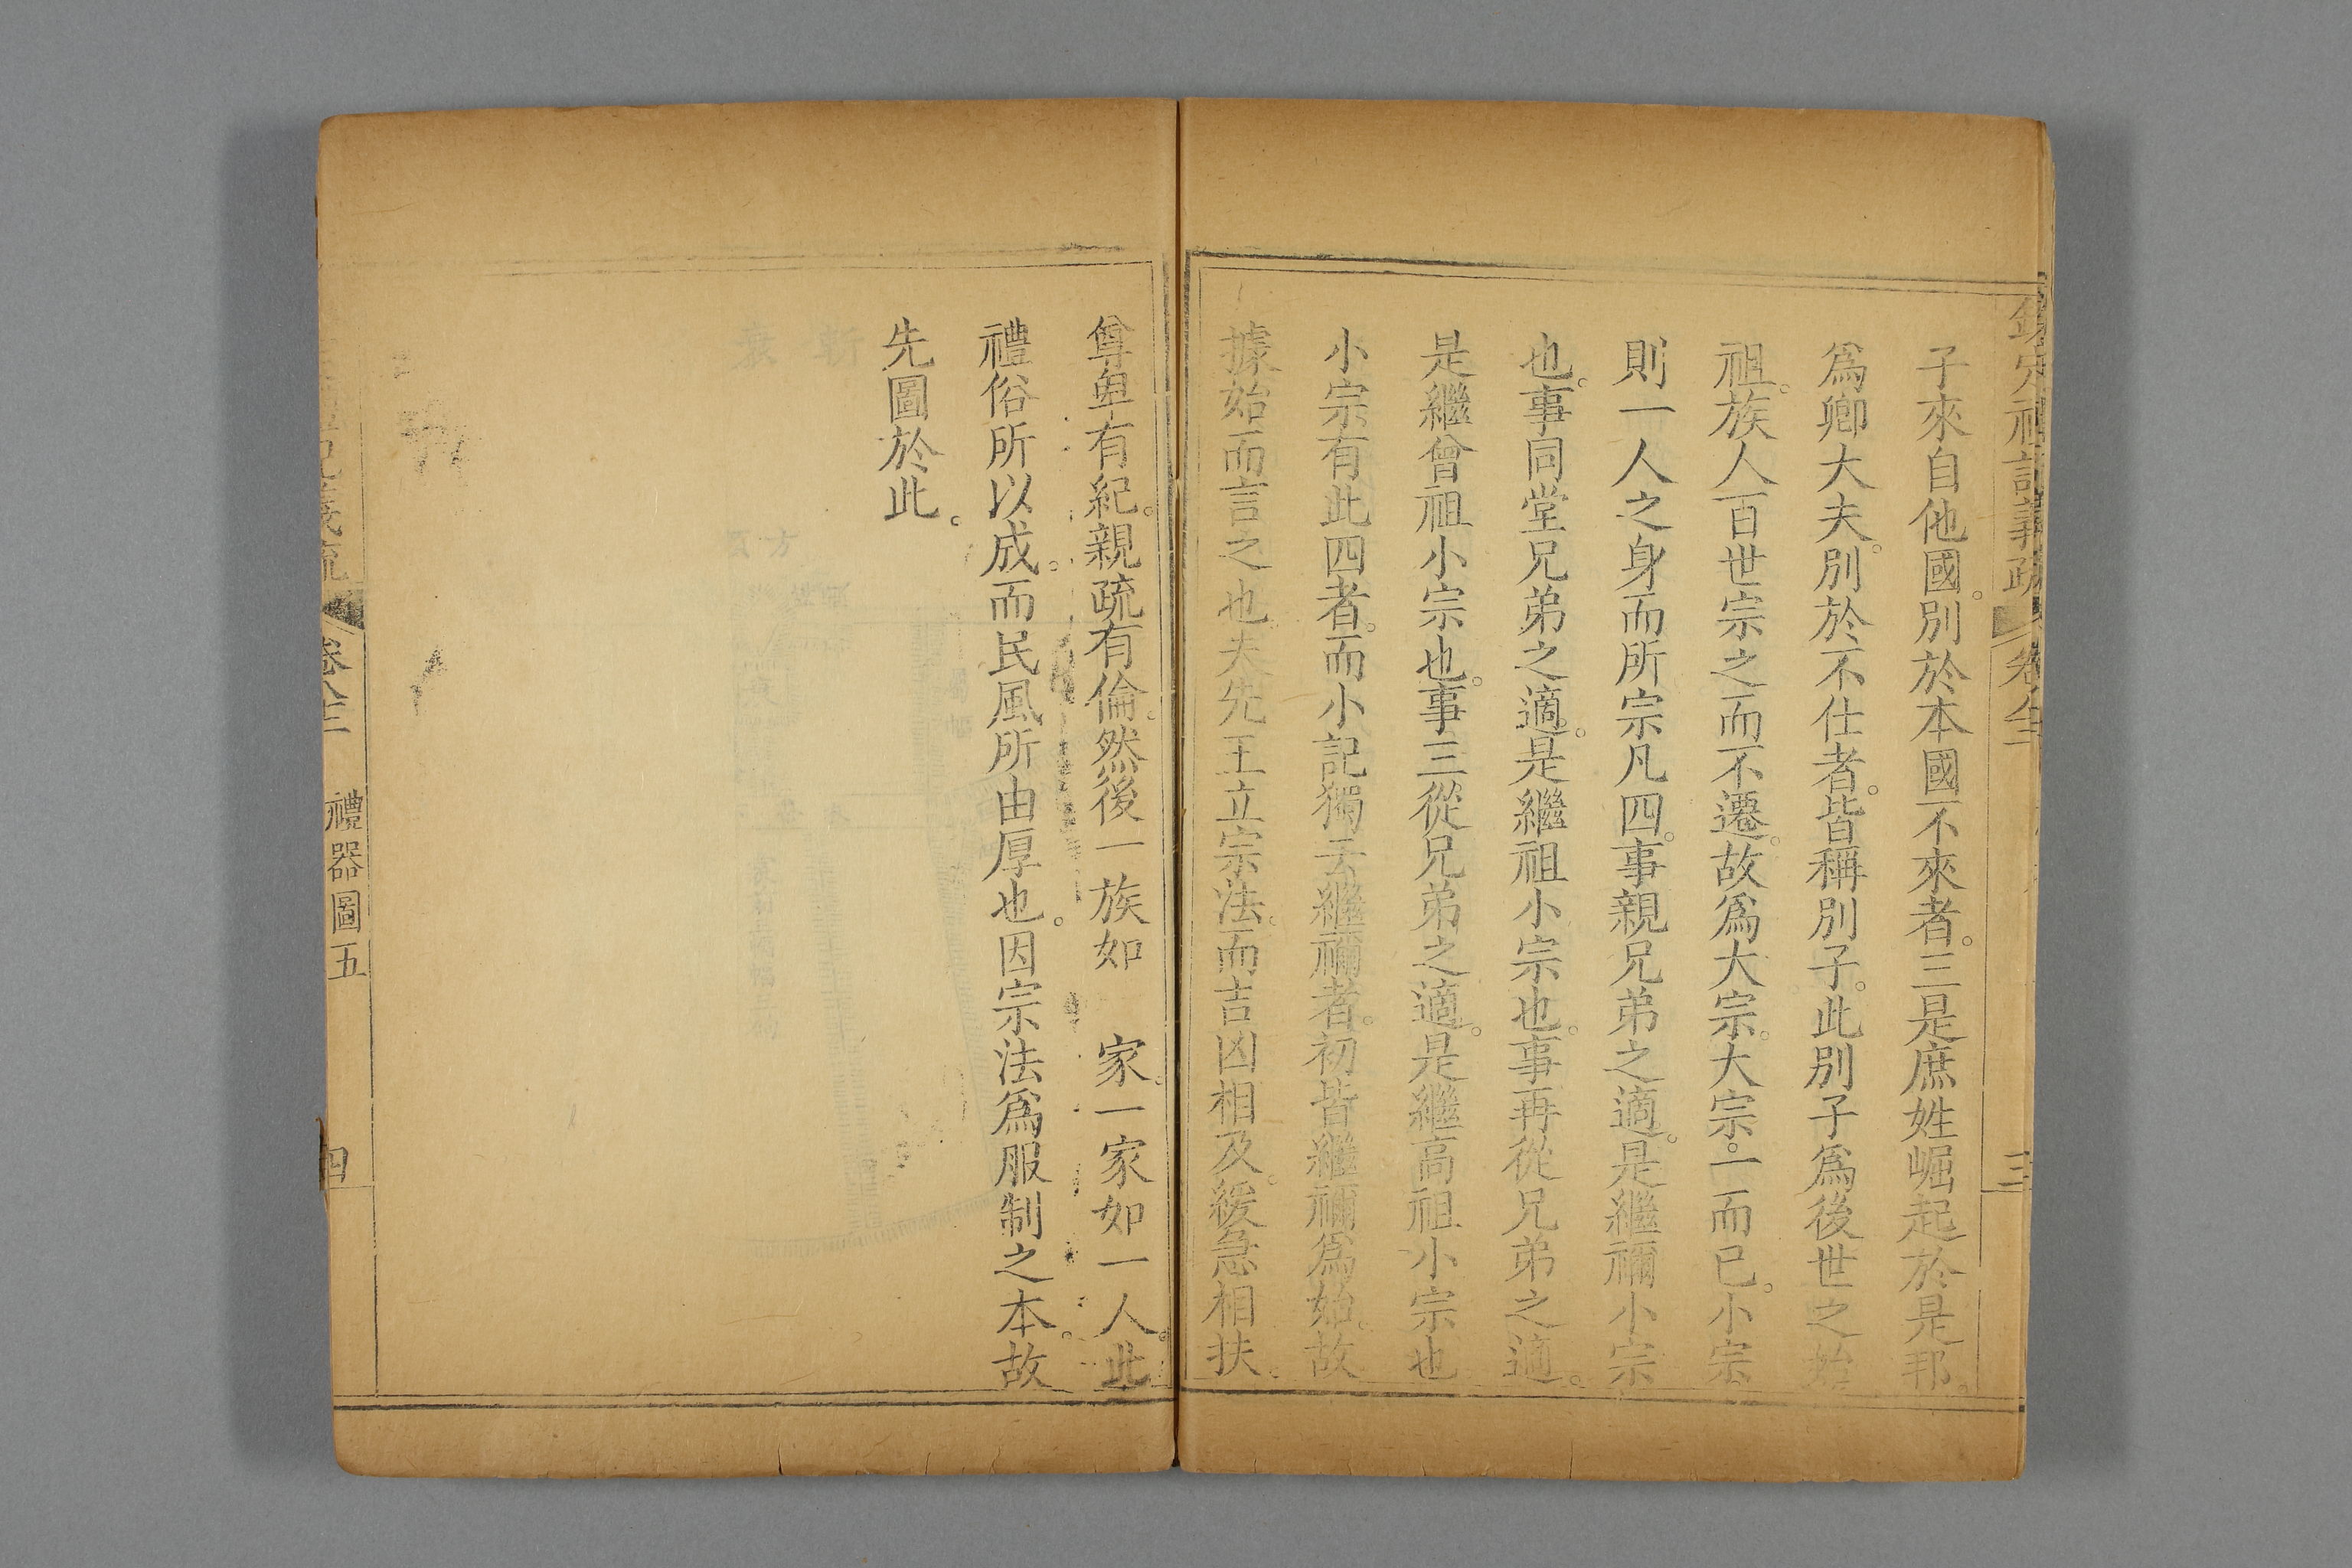 欽定禮記義疏 卷八十二 三
子來自他國。別於本國不來者。三是庶姓崛起於是邦。
爲卿大夫。別於不仕者。皆稱別子。此別子爲後世之始
祖。族人百世宗之而不遷。故爲大宗。大宗。一而已。小宗
則一人之身而所宗凡四。事親兄弟之適。是繼禰小宗
也。事同堂兄弟之適。是繼祖小宗也。事再從兄弟之適。
是繼曾祖小宗也。事三從兄弟之適。是繼高祖小宗也
小宗有此四者。而小記獨云繼禰者。初皆繼禰爲始。故
據始而言之也。夫先王立宗法。而吉凶相及。緩急相扶。
尊卑有紀。親疏有倫。然後一族如 家。一家如一人。此
禮俗所以成。而民風所由厚也。因宗法爲服制之本。故
先圖於此。
記義疏 卷八十二 禮器圖五 四